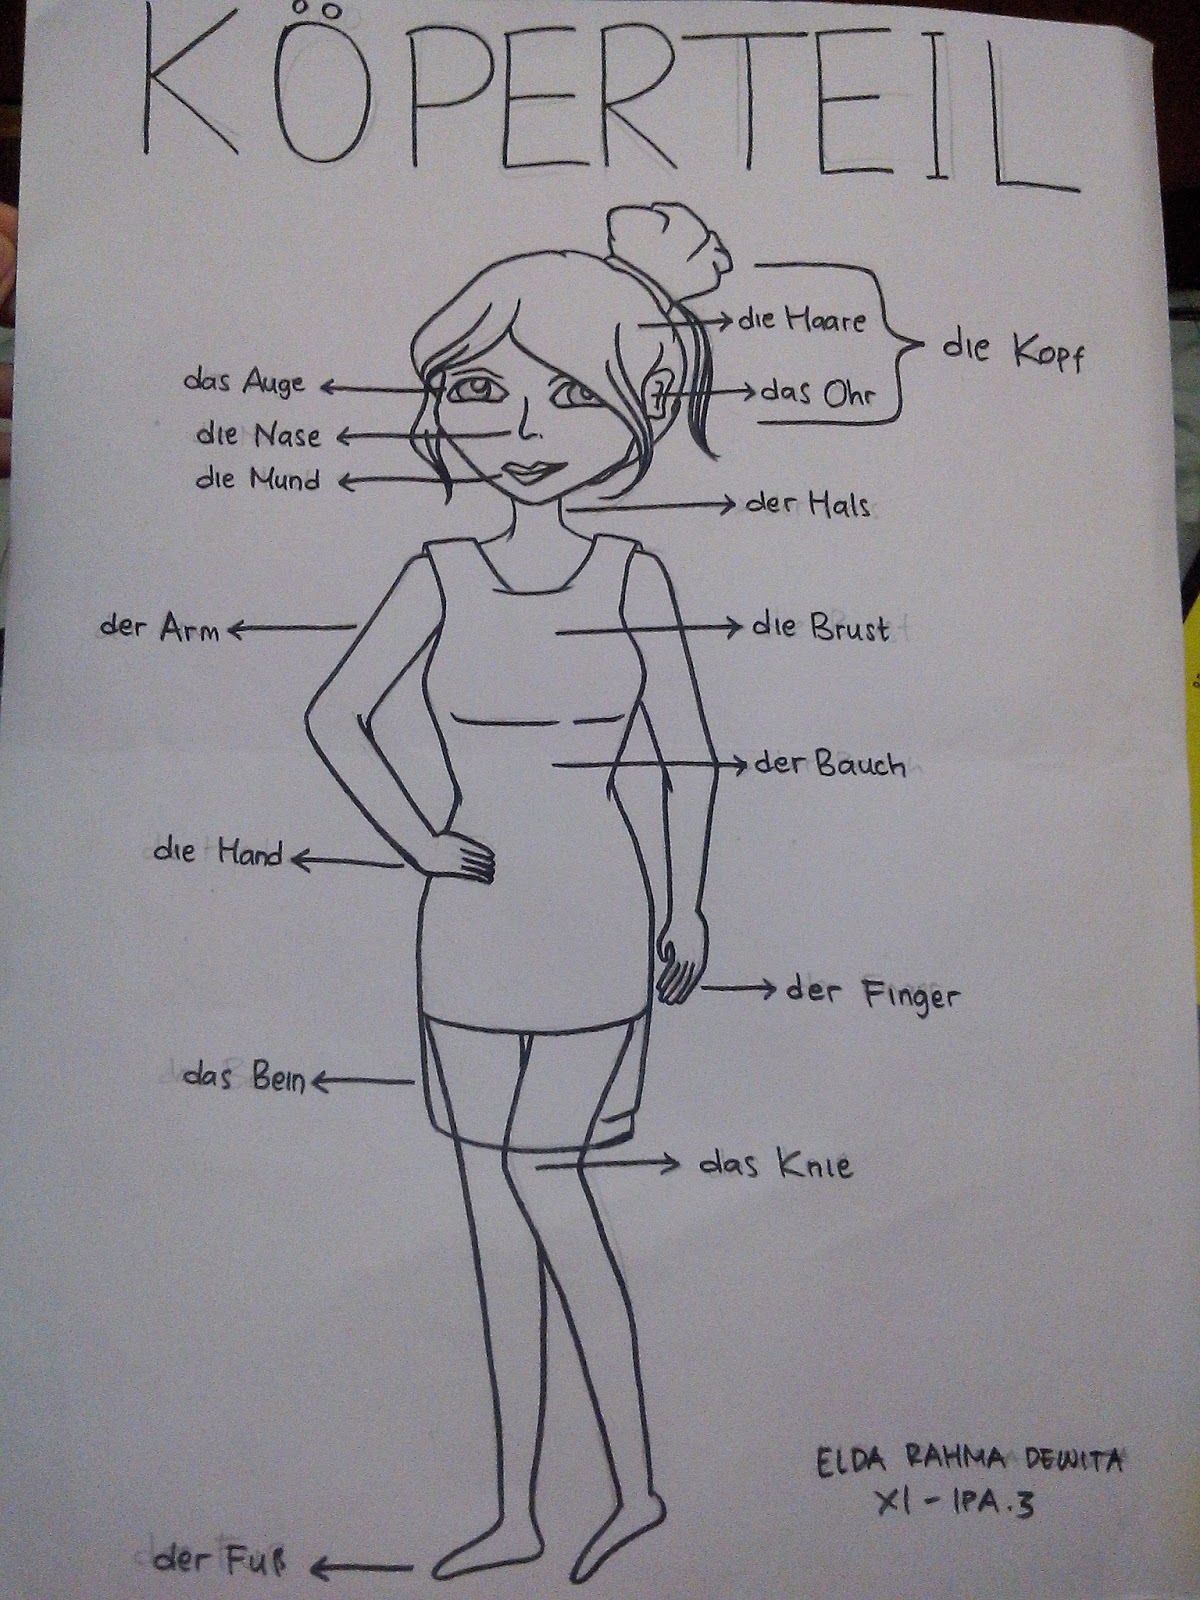 KÖPERTEIL
die Haare
die Kopf
das Auge
das Ohr
die Nase
die Mund
der Hals
der Arm
die Brust
der Bauch
die Hand
der Finger
das Bein
das Knie
ELDA RAHMA DEWITA
XI - IPA.3
der Fuß